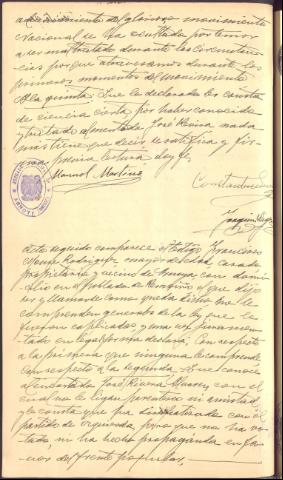 advenimiento del glorioso movimiento
Nacional de
a ser maltratado durante las circunstan
cias porque atravesamos durante los
primeros momentos del movimiento
A la quinta: Que lo declarado le consta
de ciencia cierta por haber conocido
y tratado al mentado José Rivera nada
mas tiene que decir se ratifica y fir
ma previa lectura doy fe.
Manuel Martinez
Constantino
Joaquin
Acto seguido comparece el testigo Francisco
Rodriguez mayor de edad, casado
propietario y vecino de con domi
cilio en el poblado de el que dijo
ser y llamarse como queda dicho que le
comprenden generales de la ley que le
fueron esplicadas, y una vez juramen
tado en legal forma declara: Con respecto
a la primera que ninguna le comprende
Con respecto a la segunda: Que conoce
al encartado José Rivera con el
cual no le ligan parentesco ni amistad
y le consta que ha simpatizado con el
partido de izquierda, pero que no ha vo
tado, ni ha hecho propaganda en fa
vor del frente popular.